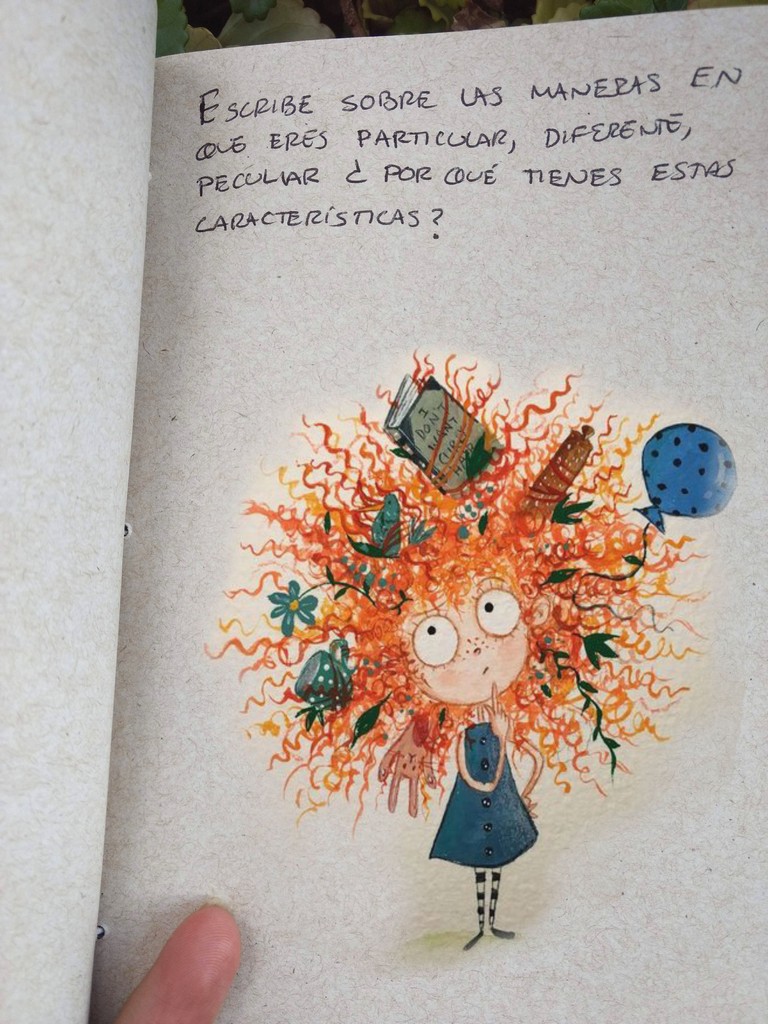 ESCRIBE SOBRE LAS MANERAS EN
QUE ERES PARTICULAR, DIFERENTE,
PECULIAR ¿POR QUÉ TIENES ESTAS
CARACTERÍSTICAS?
I
DON'T
WANT
CURLY
HAIR